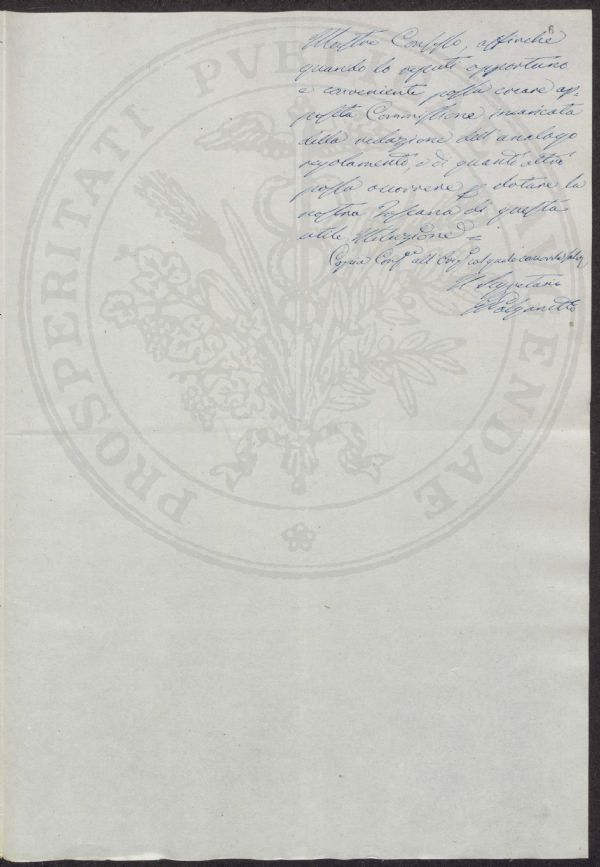 6
Nostro Consesso, affinchè
quando lo reputi opportuno
e conveniente possa creare ap-
posita Commissione incaricata
della redazione dell'analogo
regolamento, e di quant'altro
possa occorrere p dotare la
nostra Toscana di questa
utile Istituzione =
Copia Conf.e all
Il Segretario
PROSPERITATI PVBLICAE AVGENDAE